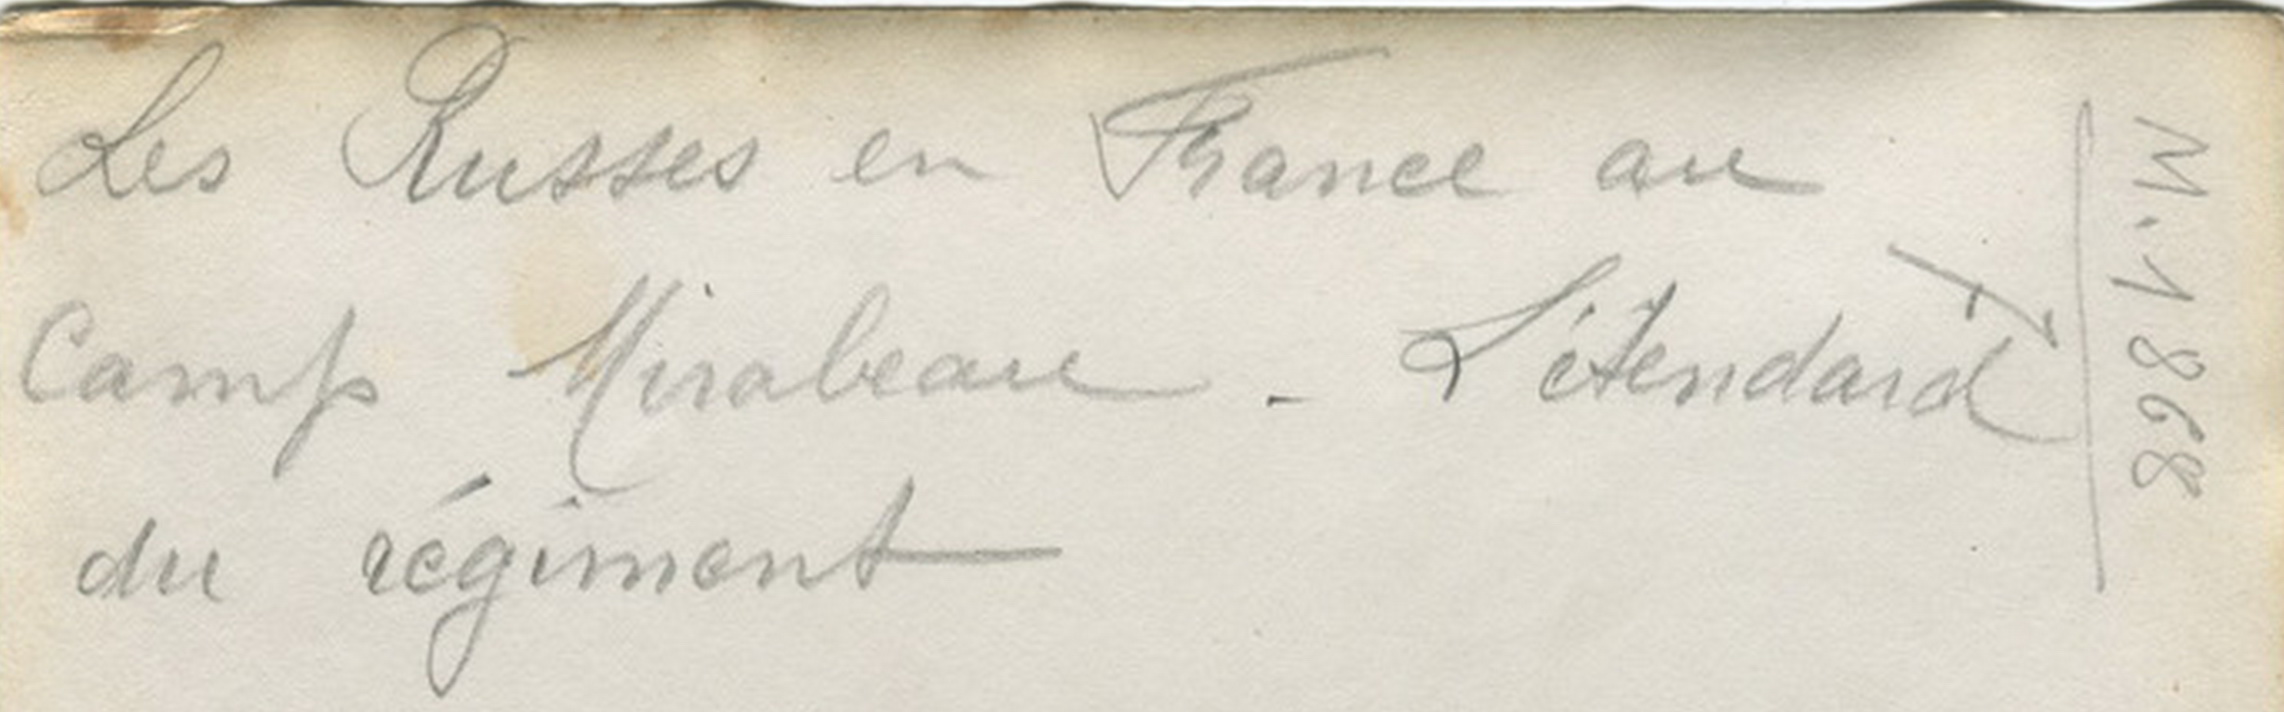 Les Russes en France au
Camp Mirabeau - L'étendard
du régiment
M.1868